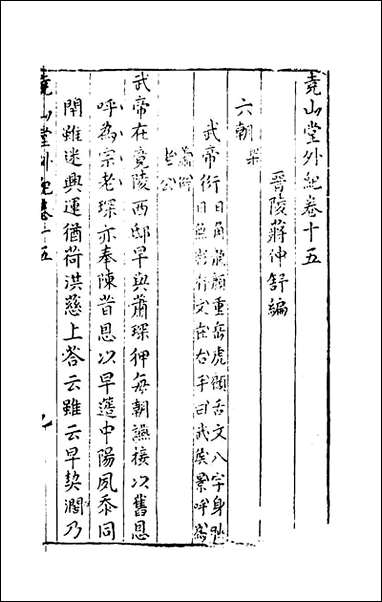 堯山堂外紀卷十五
晉陵蔣仲舒編
六朝 梁
武帝衍 日角龍顏重岳虎顧舌文八字身
日無影有文在右手曰武侯景呼
蕭
老公
武帝在竟陵西邸早與蕭琛狎每朝讌接以舊恩
呼為宗老琛亦奉陳昔恩以早簉中陽夙忝同
閈雖迷興運猶荷洪慈上答云雖云早契濶乃
堯山堂外紀卷十五